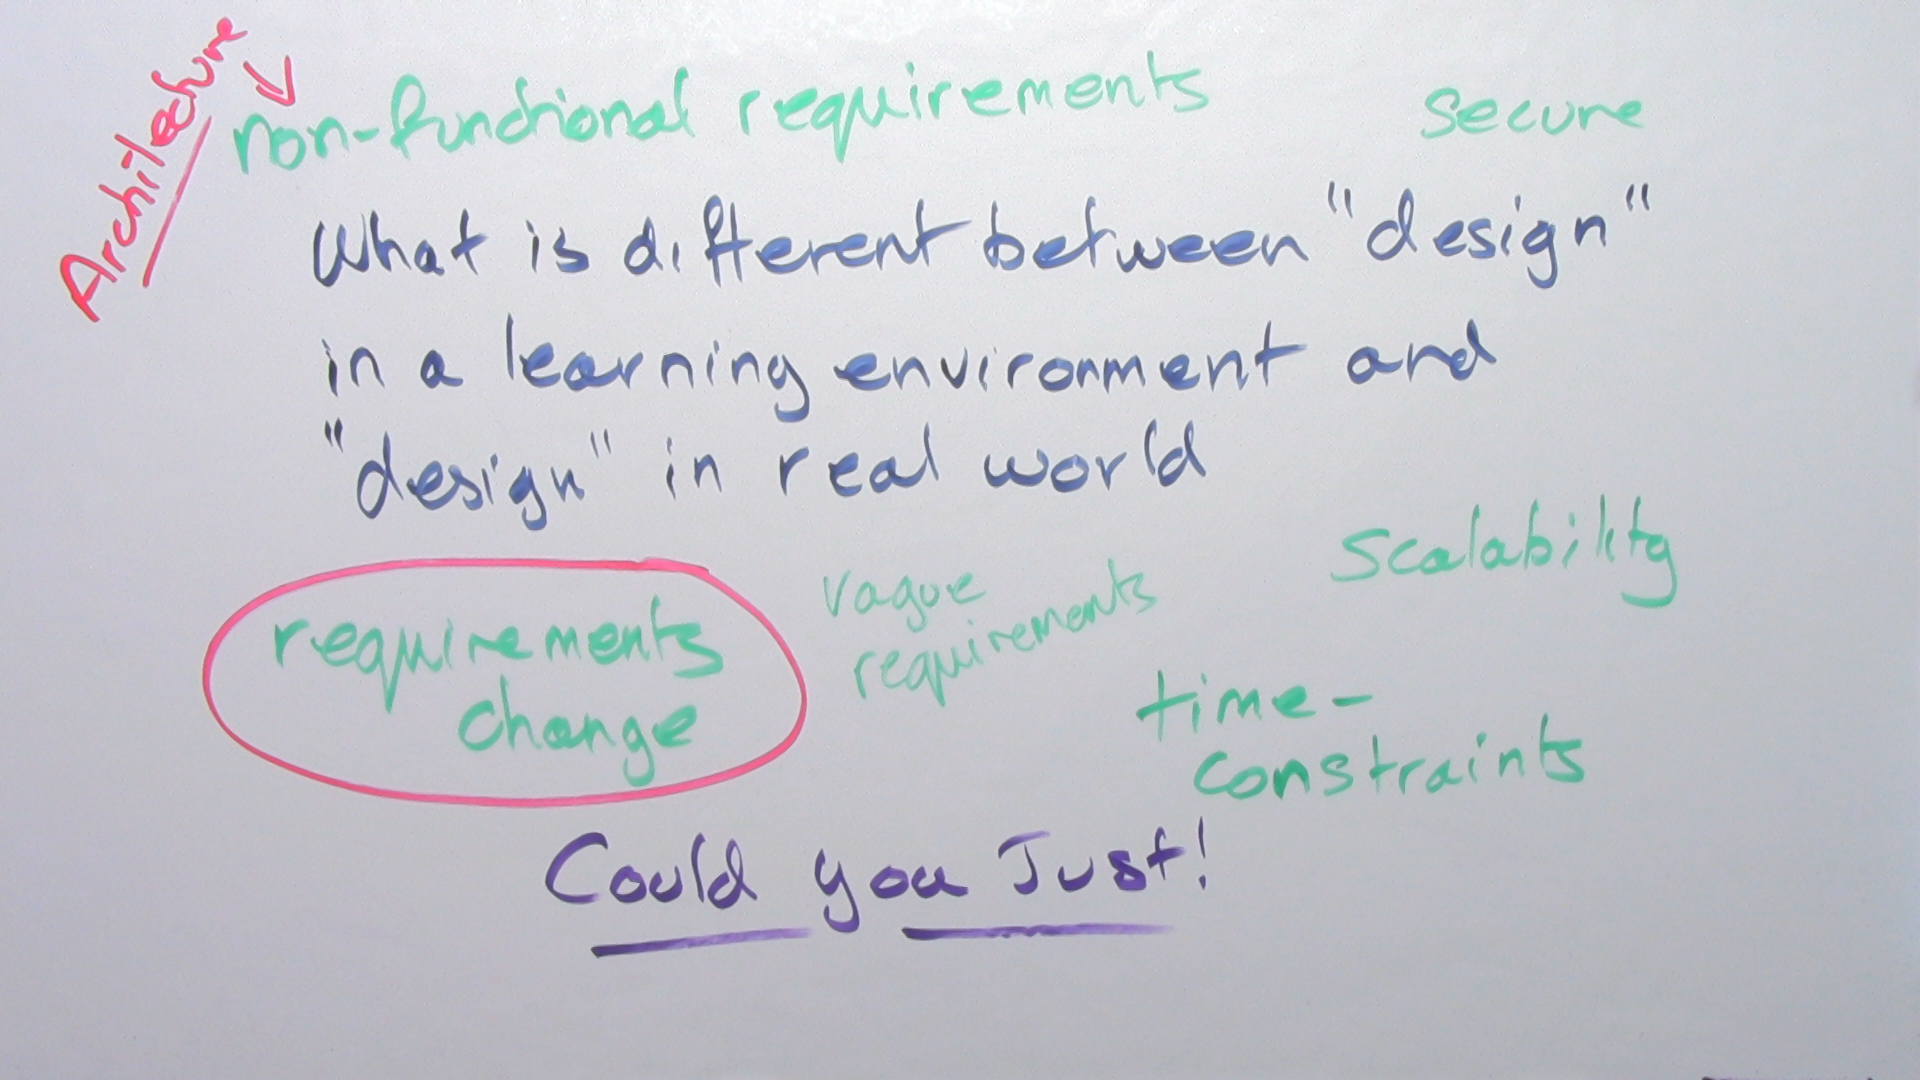 Architecture
non-functional requirements
secure
What is different between "design"
in a learning environment and
"design" in real world
scalability
vague
requirements
requirements
change
time-
constraints
Could you Just!